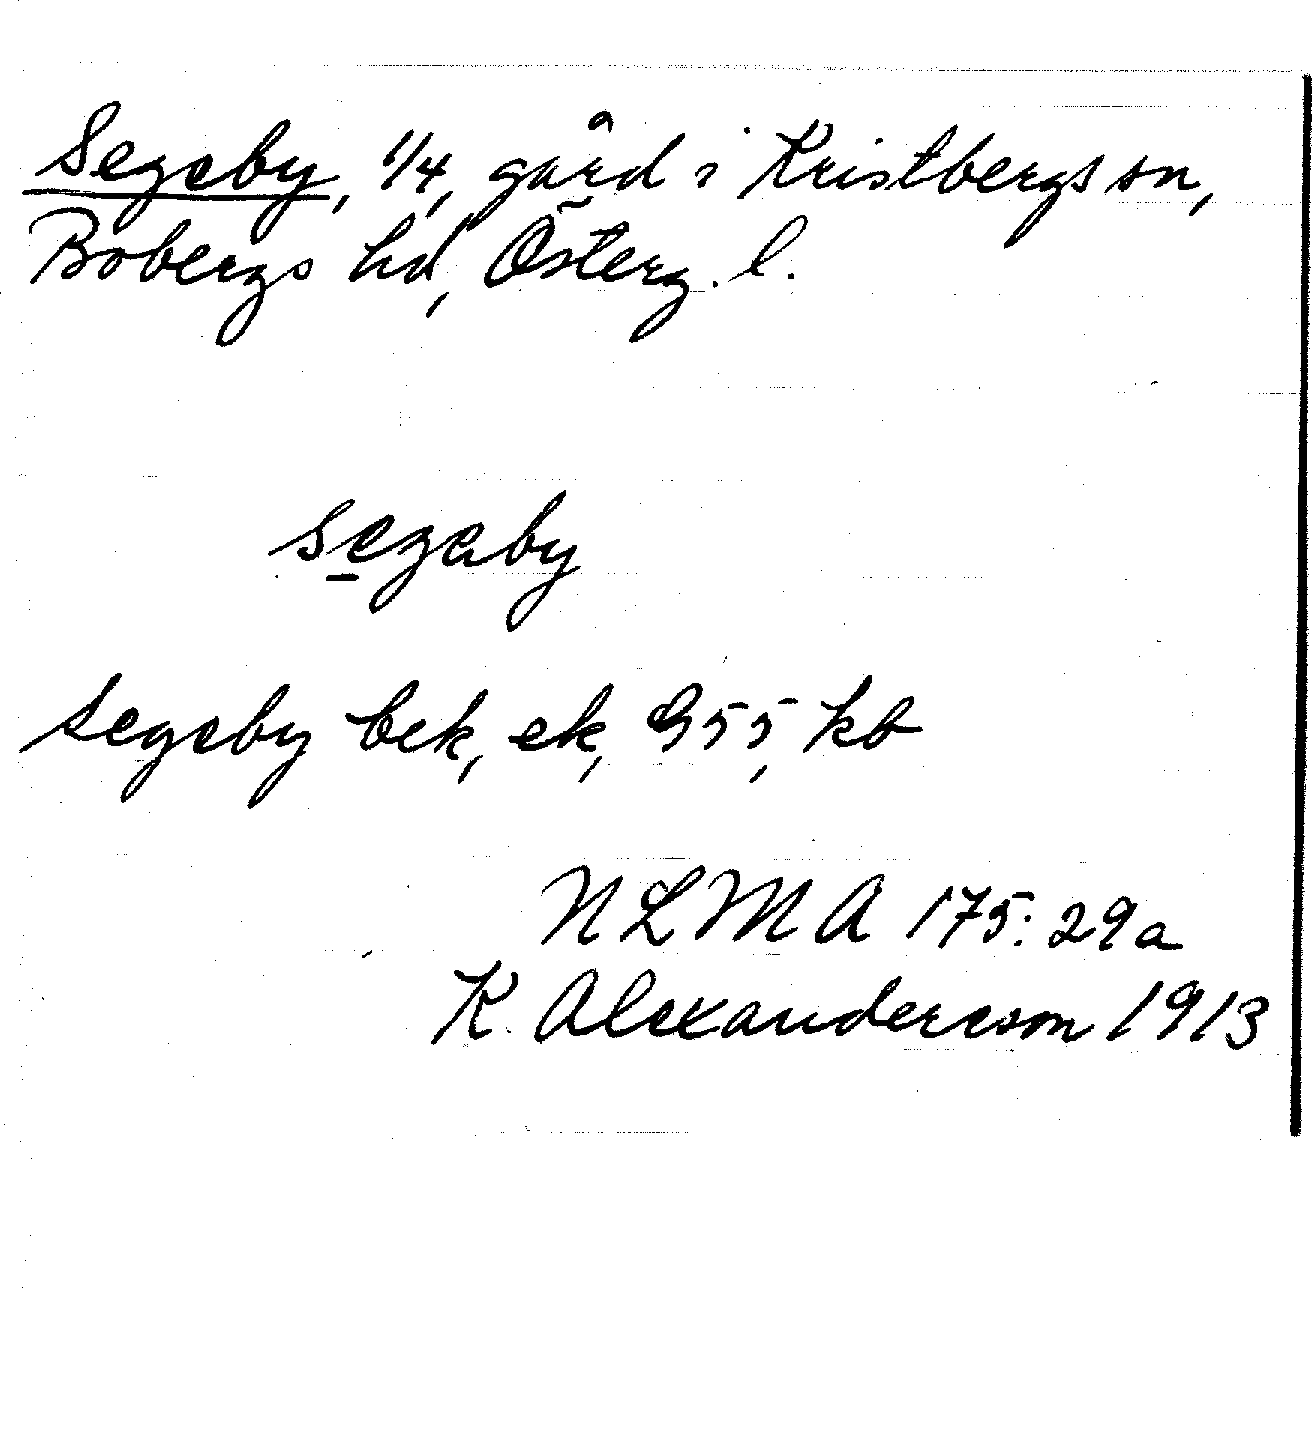 Segeby, 1/4, gård i Kristbergs sn,
Bobergs hd, Österg. l.
segaby
segeby bek, ek, G55, kb
NLMA 175:29a
K. Alexanderson 1913